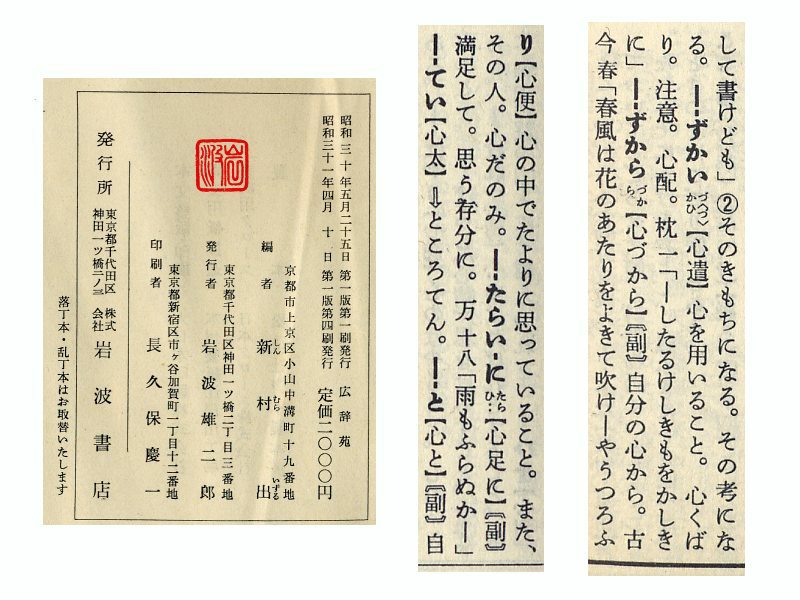 昭和三十年五月二十五日 第一版第一刷発行 広辞苑
昭和三十一年四月 十 日 第一版第四刷発行 定価二〇〇〇円
京都市上京区小山中溝町十九番地
編者 新村出
しん むら いずる
東京都千代田区神田一ツ橋二丁目三番地
発行者 岩波雄二郎
東京都新宿区市ヶ谷加賀町一丁目十二番地
印刷者 長久保慶一
発行所 東京都千代田区神田一ツ橋二ノ三 株式会社 岩波書店
落丁本・乱丁本はお取替いたします
り【心便】心の中でたよりに思っていること。また、
その人。心だのみ。―たらい‐に たらひ‥【心足に】〘副〙
満足して。思う存分に。万十八「雨もふらぬか―」
―てい【心太】⇩ところてん。―と【心と】〘副〙自
して書けども」②そのきもちになる。その考にな
る。―ずかい づかひ〈づ〉【心遣】心を用いること。心くば
り。注意。心配。枕一「―したるけしきもをかしき
に」―ずから づから【心づから】〘副〙自分の心から。古
今春「春風は花のあたりをよきて吹け―やうつろふ